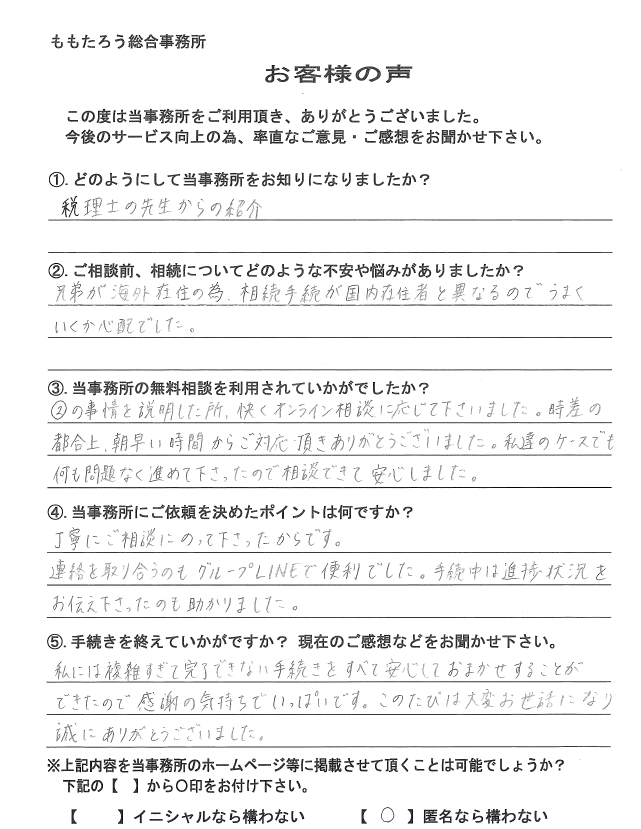 ももたろう総合事務所
お客様の声
この度は当事務所をご利用頂き、ありがとうございました。
今後のサービス向上の為、率直なご意見・ご感想をお聞かせ下さい。
①. どのようにして当事務所をお知りになりましたか？
税理士の先生からの紹介
②. ご相談前、相続についてどのような不安や悩みがありましたか？
兄弟が海外在住の為、相続手続が国内在住者と異なるのでうまく
いくか心配でした。
③. 当事務所の無料相談を利用されていかがでしたか？
②の事情を説明した所、快くオンライン相談に応じて下さいました。時差の
都合上、朝早い時間からご対応頂きありがとうございました。私達のケースでも
何も問題なく進めて下さったので相談できて安心しました。
④. 当事務所にご依頼を決めたポイントは何ですか？
丁寧にご相談にのって下さったからです。
連絡を取り合うのもグループLINEで便利でした。手続中は進捗状況を
お伝え下さったのも助かりました。
⑤. 手続きを終えていかがですか？ 現在のご感想などをお聞かせ下さい。
私には複雑すぎて完了できない手続きをすべて安心しておまかせすることが
できたので感謝の気持ちでいっぱいです。このたびは大変お世話になり
誠にありがとうございました。
※上記内容を当事務所のホームページ等に掲載させて頂くことは可能でしょうか？
下記の【　】から〇印をお付け下さい。
【　　】イニシャルなら構わない　　【 〇 】匿名なら構わない